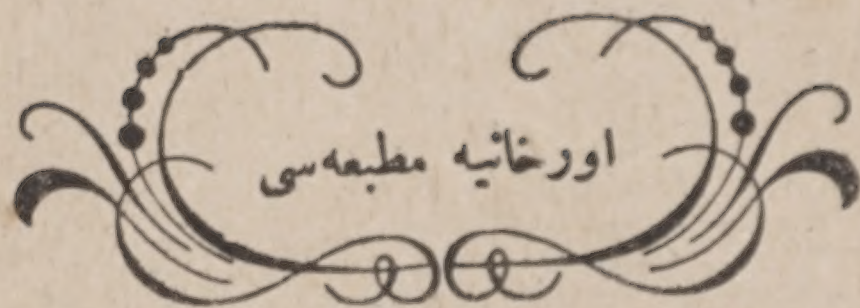 اورخانيه مطبعه‌سی